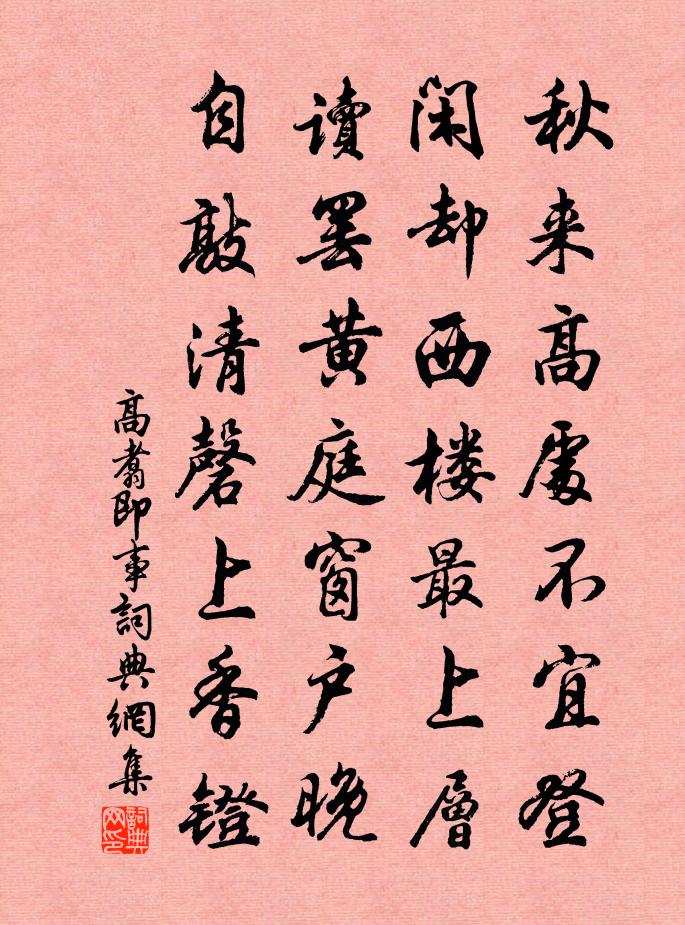 秋来高處不宜登
閑却西楼最上層
讀罢黄庭窗户晚
自敲清磬上香鐙
高翥即事詞典網集
詞典网印